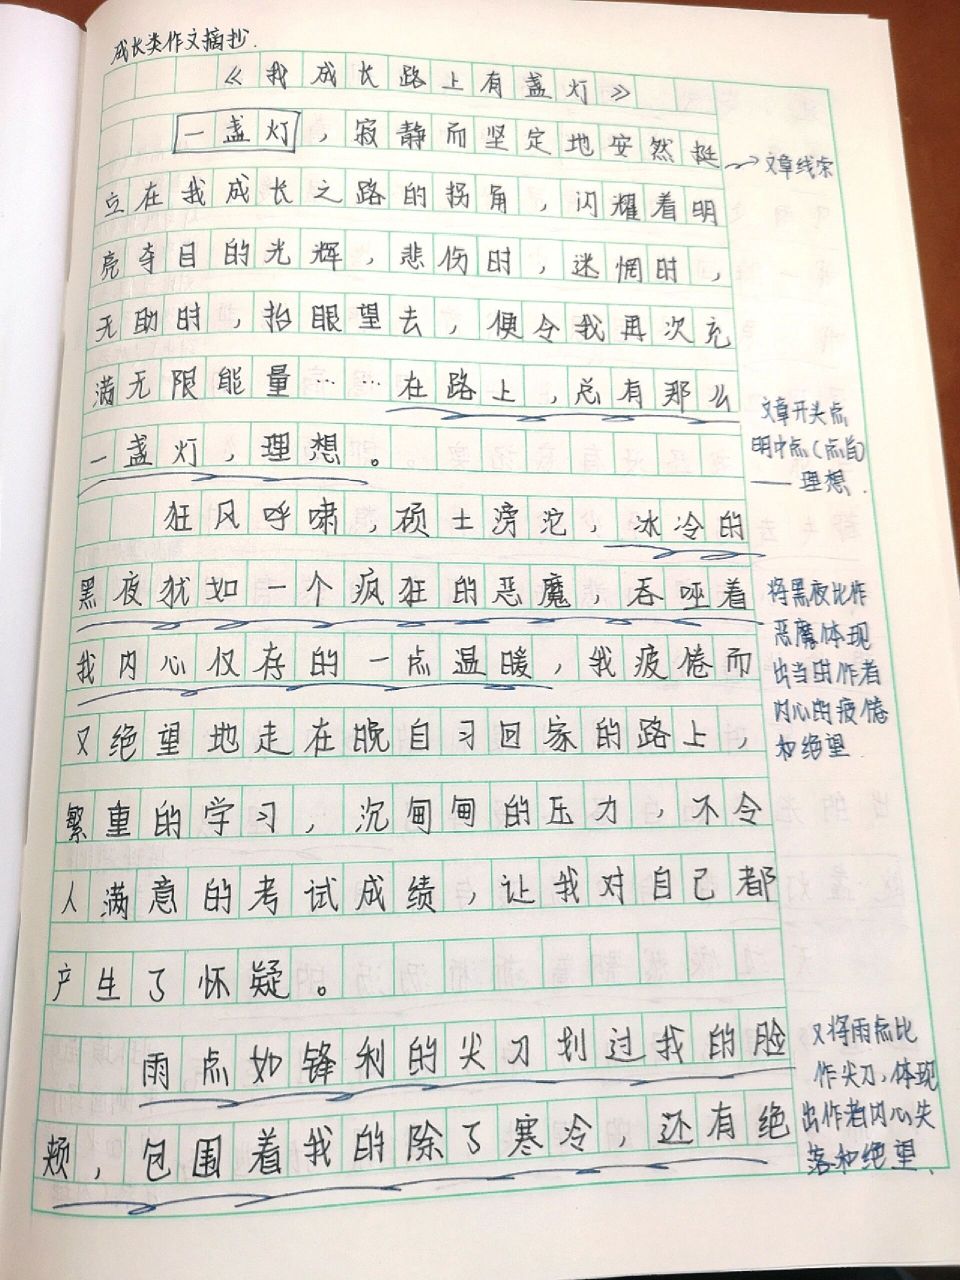 成长类作文摘抄.
《我成长路上有盏灯》
一盏灯，寂静而坚定地安然挺
文章线索
立在我成长之路的拐角，闪耀着明
亮夺目的光辉，悲伤时，迷惘时，
无助时，抬眼望去，便令我再次充
满无限能量……在路上，总有那么
一盏灯，理想。
文章开头点
明中点(点自)
——理想.
狂风呼啸，硕士滂沱，冰冷的
黑夜犹如一个疯狂的恶魔，吞哑着
我内心仅存的一点温暖，我疲倦而
又绝望地走在晚自习回家的路上，
将黑夜比作
恶魔体现
出当时作者
内心的疲倦
和绝望.
繁重的学习，沉甸甸的压力，不令
人满意的考试成绩，让我对自己都
产生了怀疑。
雨点如锋利的尖刀划过我的脸
颊，包围着我的除了寒冷，还有绝
又将雨点比
作尖刀，体现
出作者内心失
落和绝望.